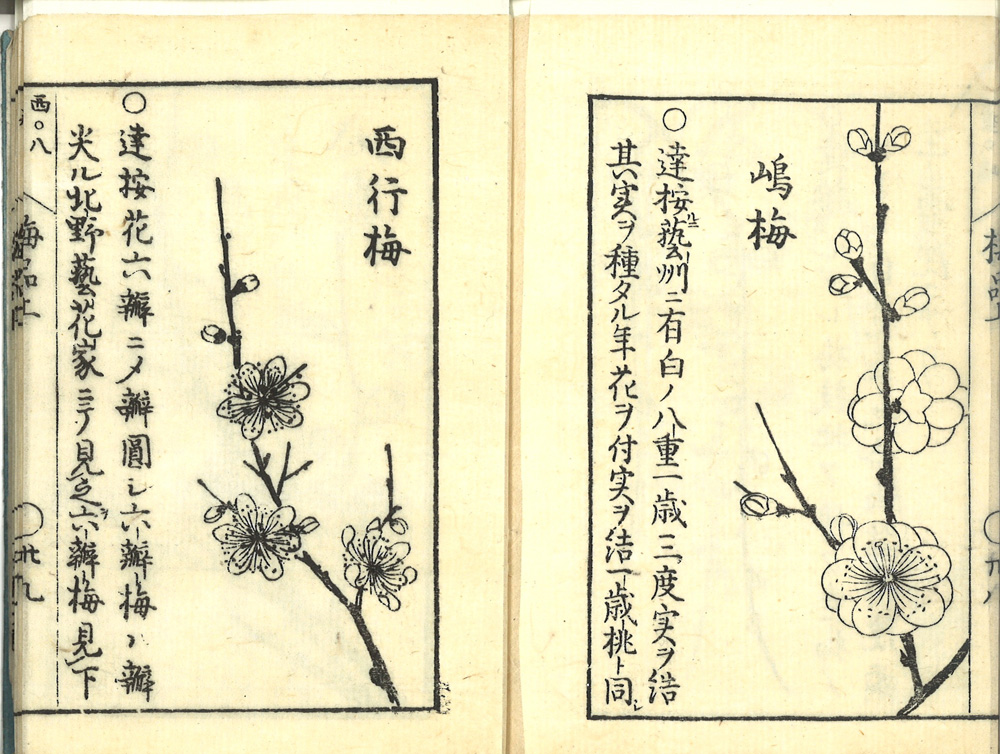 嶋梅
○達按藝州ニ有白ノ八重一歳三度実ヲ結
其実ヲ種タル年花ヲ付実ヲ結一歳桃ト同シ
西行梅
○達按花六瓣ニメ瓣圓シ六瓣梅ハ瓣
尖ル北野藝花家ニテ見之六瓣梅見下
西〇八
梅品上
○廿九